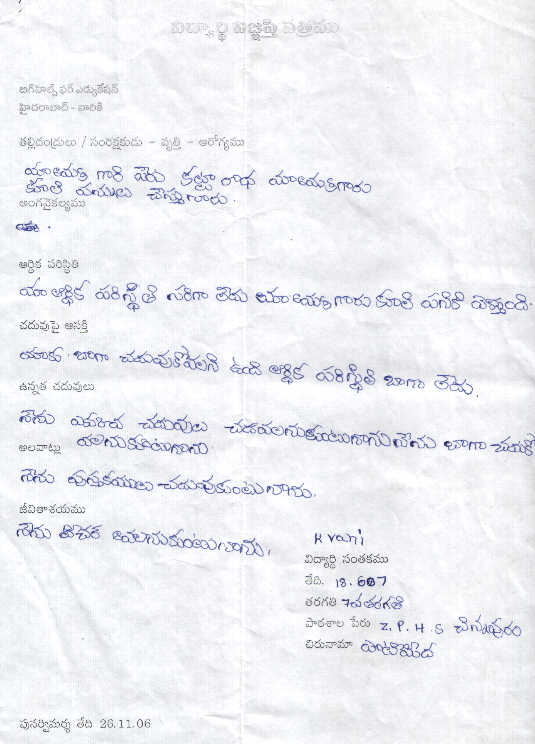 విద్యార్థి విజ్ఞప్తి పత్రము
బిగ్‌హెల్ప్ ఫర్ ఎడ్యుకేషన్
హైదరాబాద్ - వారికి
తల్లిదండ్రులు / సంరక్షకుడు - వృత్తి - ఆరోగ్యము
గారి పేరు రాధ
కూలి పనులు చేస్తున్నారు.
అంగవైకల్యము
ఆర్థిక పరిస్థితి
మా ఆర్థిక పరిస్థితి సరిగా లేదు మా కూలి పనికి
చదువుపై ఆసక్తి
నాకు బాగా చదువుకోవాలని ఉంది ఆర్థిక పరిస్థితి బాగా లేదు.
ఉన్నత చదువులు
నేను చదువులు చదవాలనుకుంటునాను నేను బాగా
అలవాట్లు
నేను పుస్తకములు చదువుకుంటునాను.
జీవితాశయము
నేను టీచర్
K vani
విద్యార్థి సంతకము
తేది. 18.607
తరగతి 7వతరగతి
పాఠశాల పేరు Z. P. H. S
చిరునామా
పునర్విమర్శ తేది 26.11.06